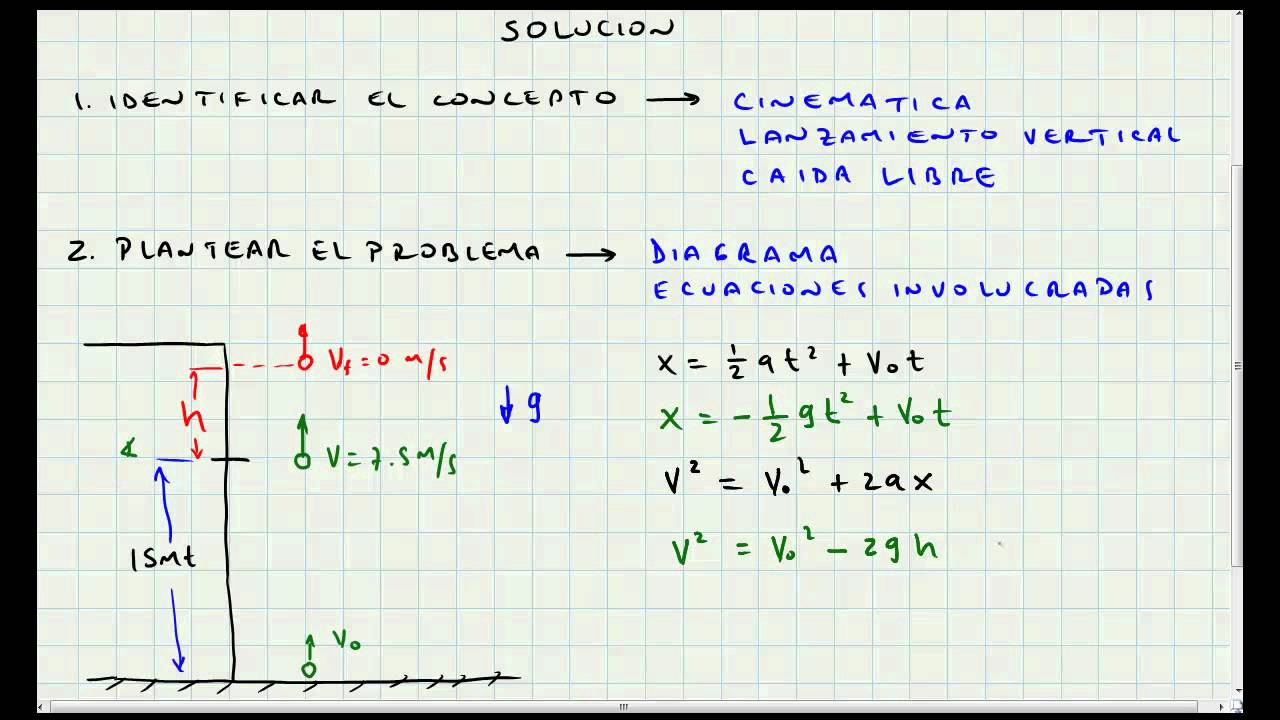 SOLUCION
1. IDENTIFICAR EL CONCEPTO → CINEMATICA
LANZAMIENTO VERTICAL
CAIDA LIBRE
2. PLANTEAR EL PROBLEMA → DIAGRAMA
ECUACIONES INVOLUCRADAS
Vf = 0 m/s
h
V = 7.5 m/s
15mt
V₀
↓ g
x = ½ a t² + V₀ t
x = - ½ g t² + V₀ t
V² = V₀² + 2 a x
V² = V₀² - 2 g h